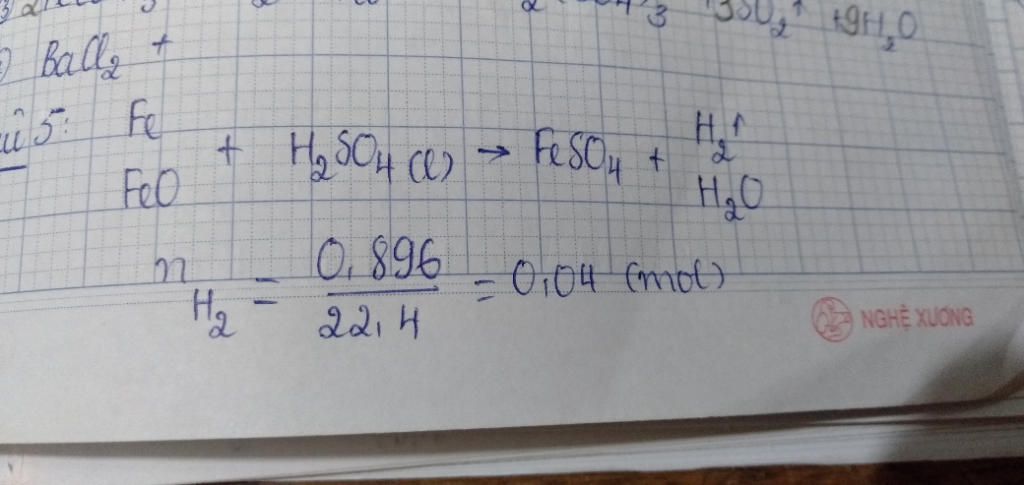 3SO₂↑ +9H₂O
BaCl₂ +
5:
Fe
FeO
+ H₂SO₄ (l) → FeSO₄ +
H₂↑
H₂O
n H₂ = 0,896 / 22,4 = 0,04 (mol)
NGHỆ XƯƠNG